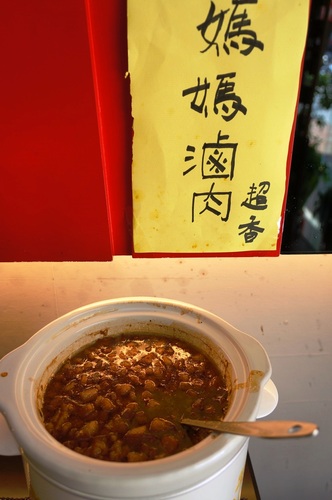 媽媽滷肉
超香